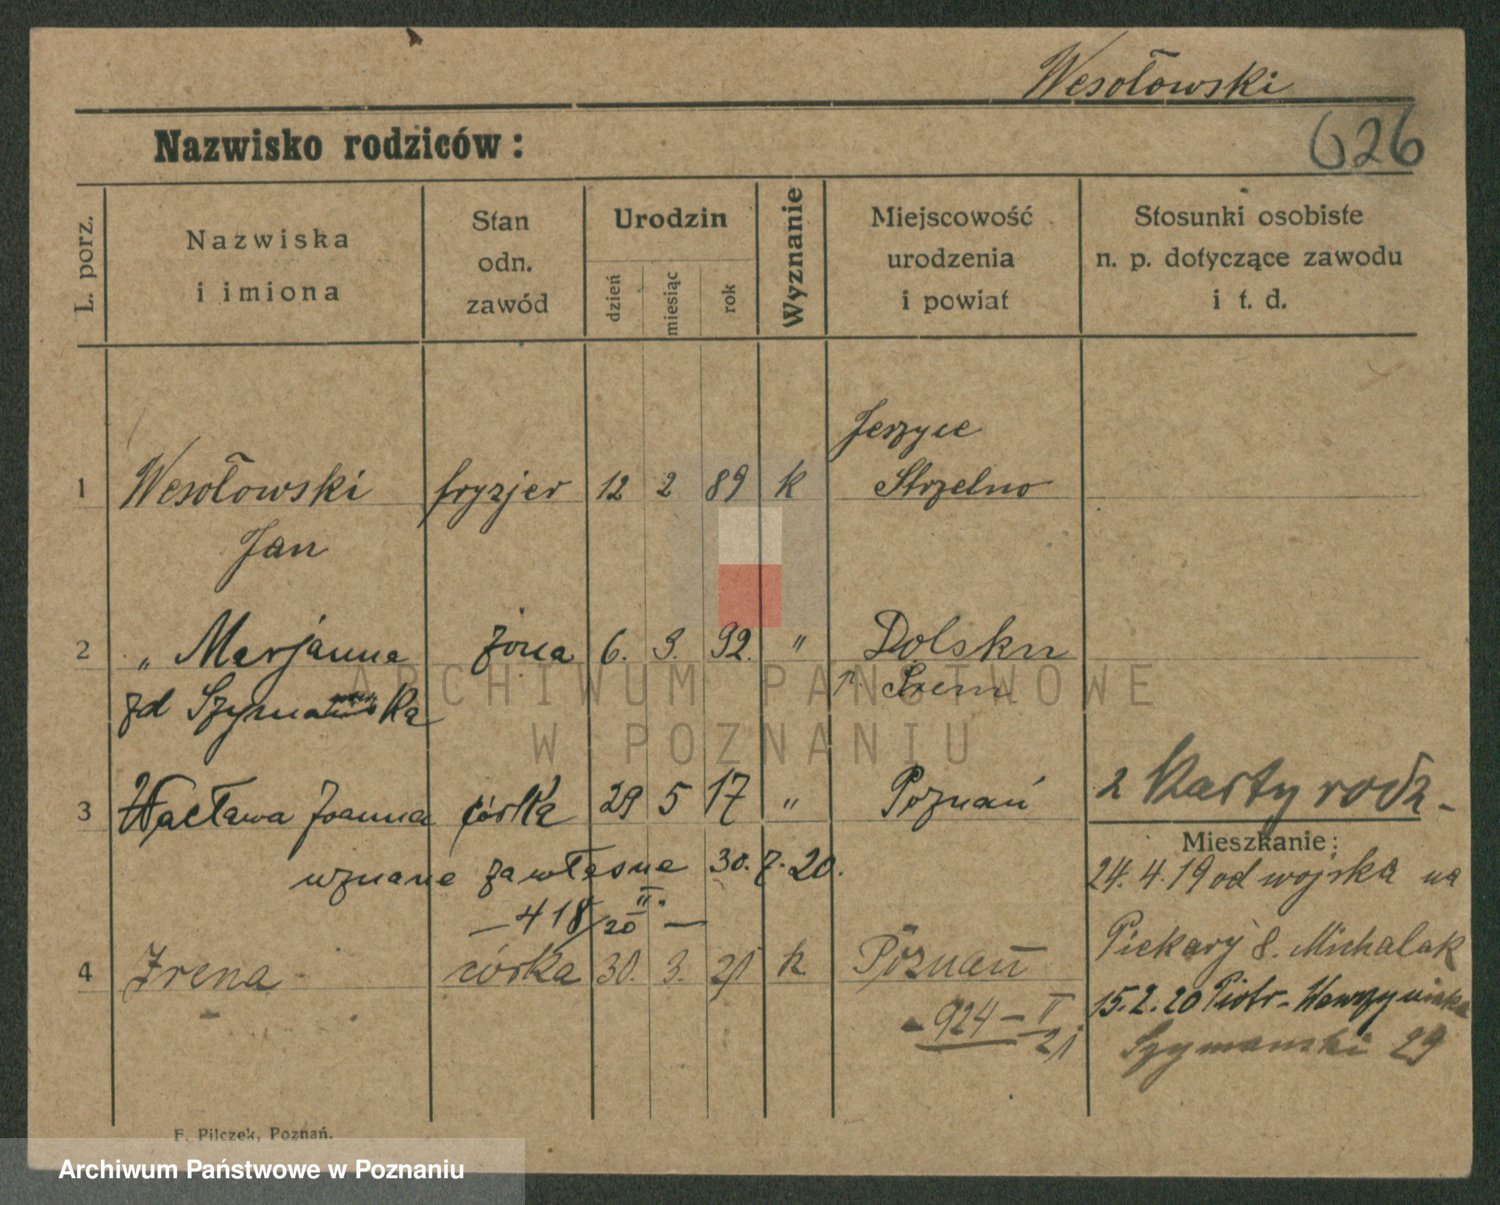 Wesołowski
Nazwisko rodziców:
626
L. porz.
Nazwiska
i imiona
Stan
odn.
zawód
Urodzin
dzień
miesiąc
rok
Wyznanie
Miejscowość
urodzenia
i powiat
Stosunki osobiste
n. p. dotyczące zawodu
i t. d.
Jerzyce
1 Wesołowski fryzjer 12 2 89 k Strzelno
Jan
2 „ Marjanna żona 6. 3. 92. „ Dolsku
zd Szymańska Śrem
3 Wacława Joanna córka 29 5 17 „ Poznań
2 Karty rodz.
Mieszkanie:
uznane za własne 30. 7. 20.
24. 4. 19 od wojska na
— 418/20 II. —
Piekary 8. Michalak
4 Irena córka 30. 3. 21 k Poznań
15. 2. 20 Piotr-Wawrzyniaka
- 924 - II
21
Szymanski 29
F. Pilczek, Poznań.
ARCHIWUM PAŃSTWOWE
W POZNANIU
Archiwum Państwowe w Poznaniu